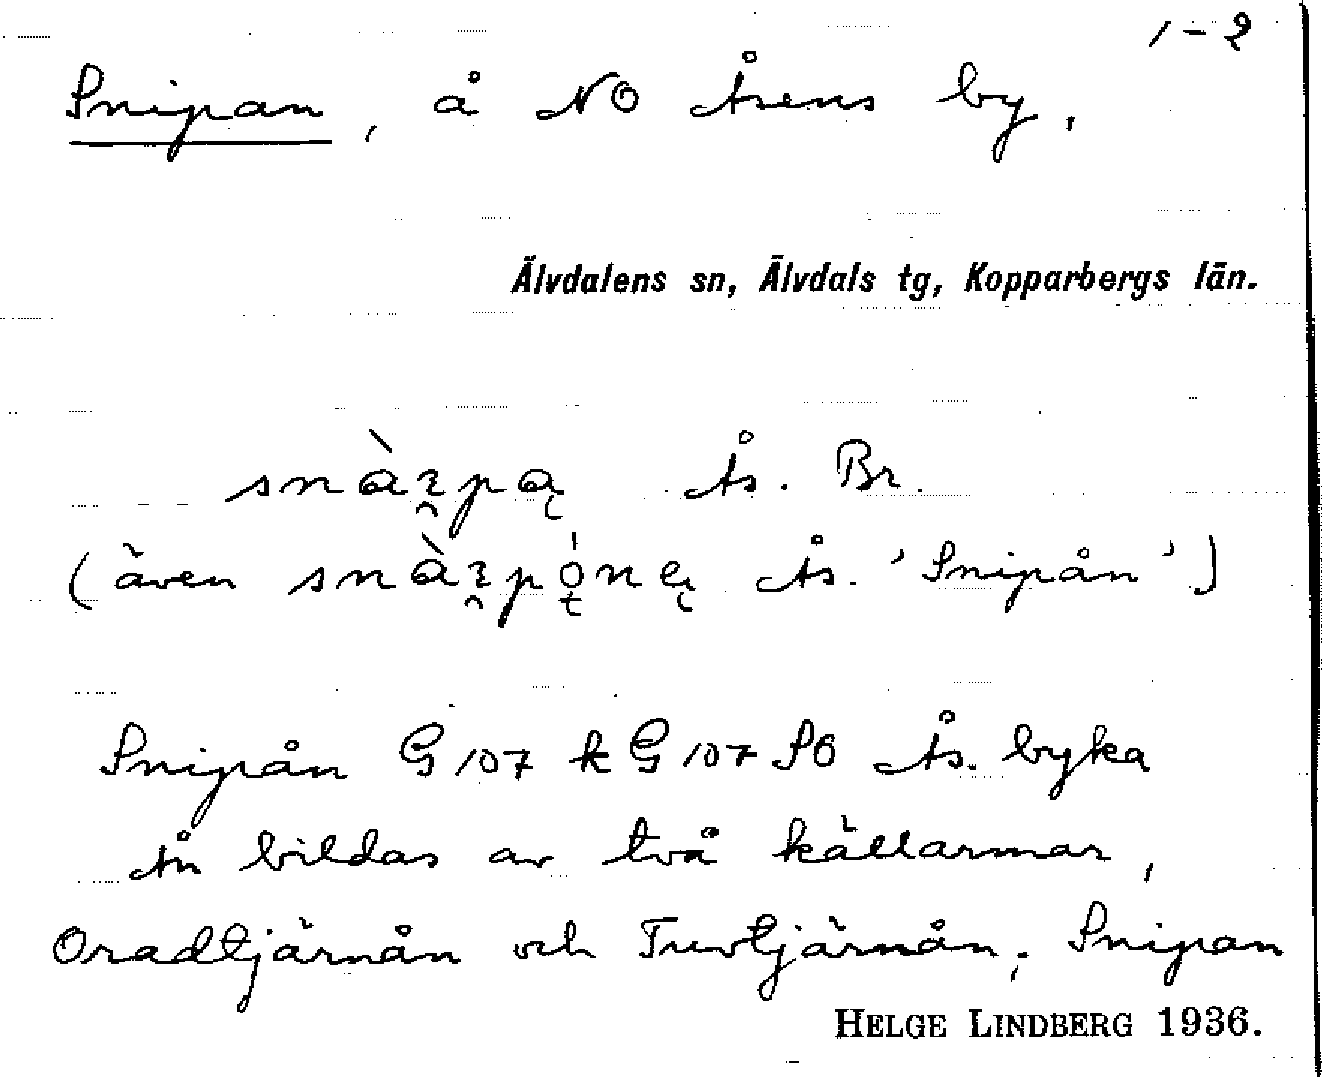 1-2
Snipan, å NO Åsens by.
Älvdalens sn, Älvdals tg, Kopparbergs län.
Ås. Br.
(även Ås. 'Snipån')
Snipån G 107 k G 107 SO Ås. byka
Ån bildas av två källarmar,
Oradtjärnån och Truvtjärnån; Snipan
HELGE LINDBERG 1936.